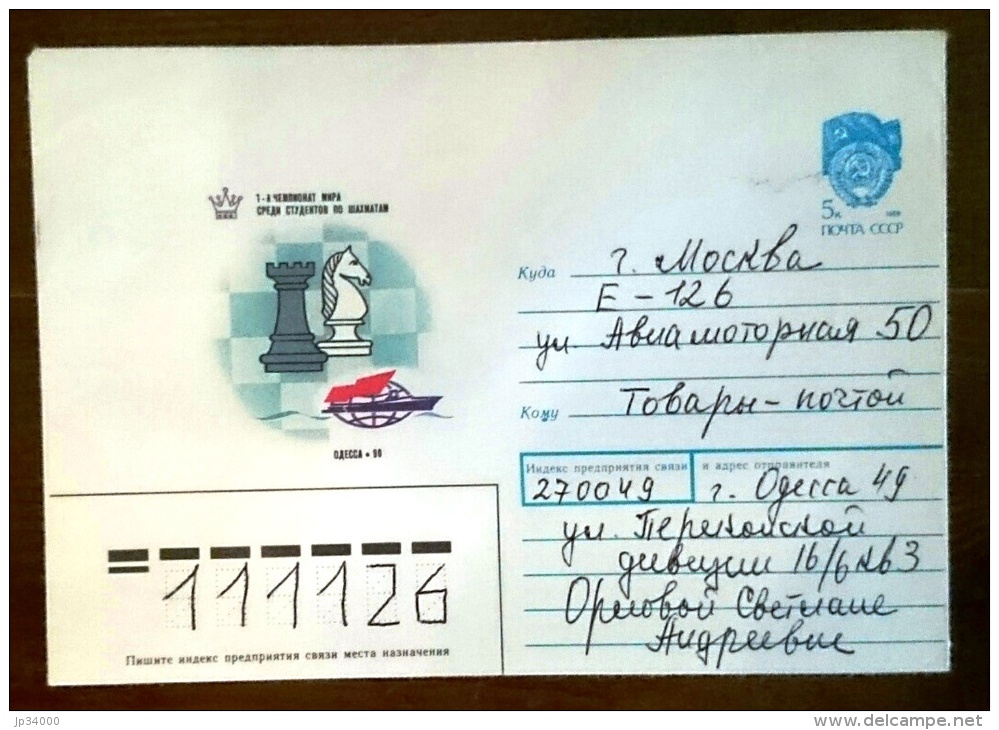 1-й ЧЕМПИОНАТ МИРА
СРЕДИ СТУДЕНТОВ ПО ШАХМАТАМ
ОДЕССА • 90
5к
ПОЧТА СССР
Куда г. Москва
Е - 126
ул. Авиамоторная 50
Кому Товары - почтой
Индекс предприятия связи и адрес отправителя
270049 г. Одесса 49
ул. Перекопской
дивизии 16/6 кв 3
Орловой Светлане
Андреевне
111126
Пишите индекс предприятия связи места назначения
jp34000
delcampe.net